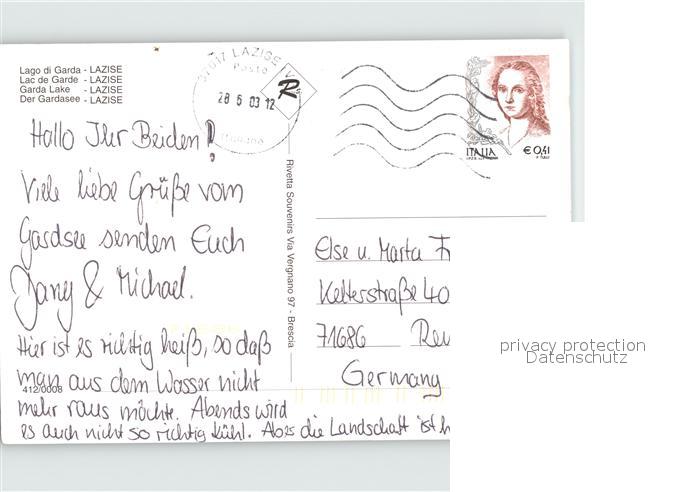 Lago di Garda - LAZISE
Lac de Garde - LAZISE
Garda Lake - LAZISE
Der Gardasee - LAZISE
37017 LAZISE V
Poste
28 6 03 12
R
ITALIA € 0,41
Hallo Ihr Beiden!
Viele liebe Grüße vom
Gardsee senden Euch
Dany & Michael.
Hier ist es richtig heiß, so daß
man aus dem Wasser nicht
412/0008
mehr raus möchte. Abends wird
es auch nicht so richtig kühl. Aber die Landschaft ist h
Rivetta Souvenirs Via Vergnano 97 - Brescia
Else u. Marta F
Kelterstraße 40
71686 Rem
Germany
privacy protection
Datenschutz